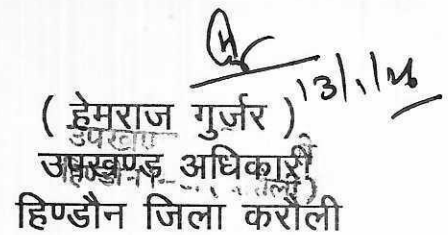 13/1/26
( हेमराज गुर्जर )
उपखण्ड अधिकारी
हिण्डौन जिला करौली